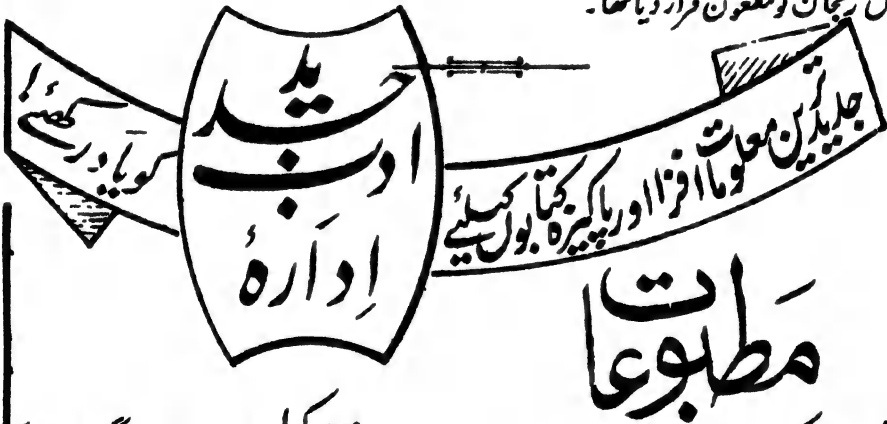 رجحان کو ملعون قرار دیا تھا۔
جدید ترین معلومات افزا اور پاکیزہ کتابوں کیلیئے
ادارۂ
ادب
جدید
کو یاد رکھئے!
مطبوعات